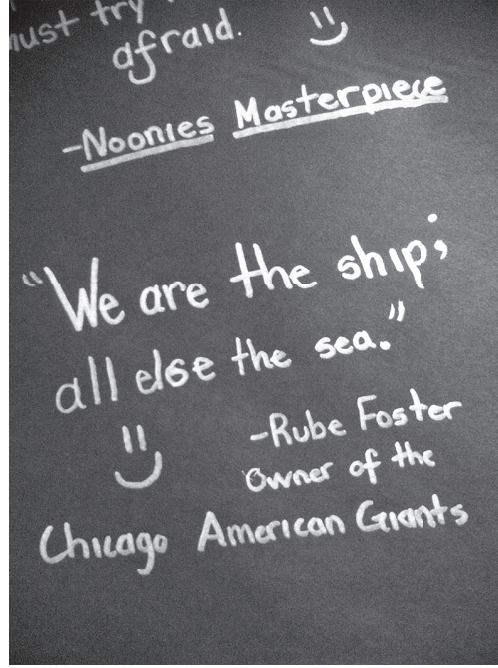 must try
afraid.
-Noonies Masterpiece
"We are the ship;
all else the sea."
-Rube Foster
owner of the
Chicago American Giants